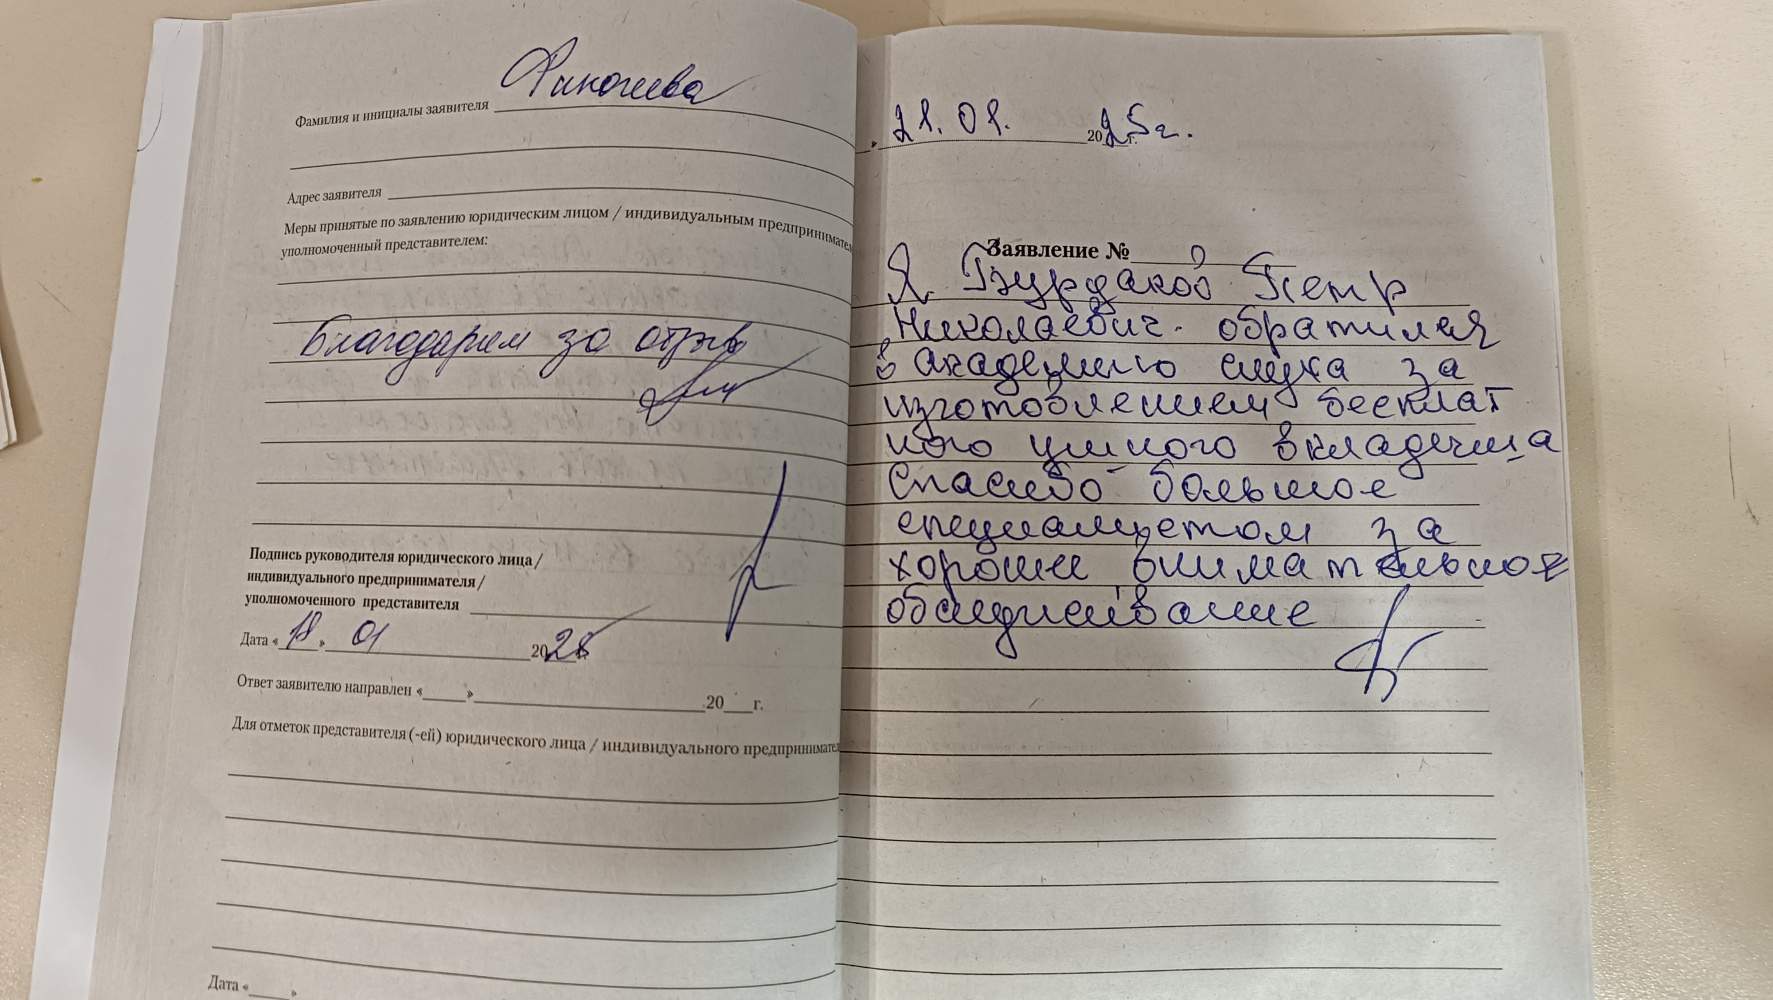 Фамилия и инициалы заявителя Финогеева
Адрес заявителя
Меры принятые по заявлению юридическим лицом / индивидуальным предпринимател
уполномоченный представителем:
Благодарим за отзыв
Подпись руководителя юридического лица /
индивидуального предпринимателя /
уполномоченного представителя
Дата « 18 » 01 2025
Ответ заявителю направлен «____» 20___г.
Для отметок представителя (-ей) юридического лица / индивидуального предпринимател
Дата «____»
» 21.01. 2025г.
Заявление №
Я Бурдаков Петр
Николаевич обратился
в академию слуха за
изготовлением бесплат
ного ушного вкладыша
Спасибо большое
специалистом за
хорошее внимательное
обслуживание